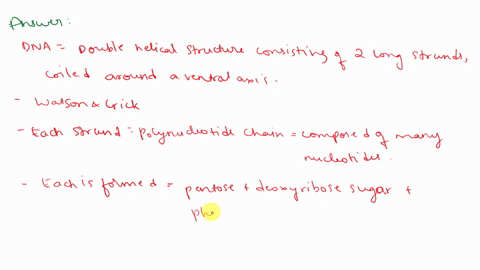 Answer:
DNA = Double helical structure consisting of 2 long strands,
coiled around a ventral axis.
- Watson & Crick
- Each strand = polynucleotide chain = composed of many
nucleotides.
- Each is formed = pentose + deoxyribose sugar +
ph